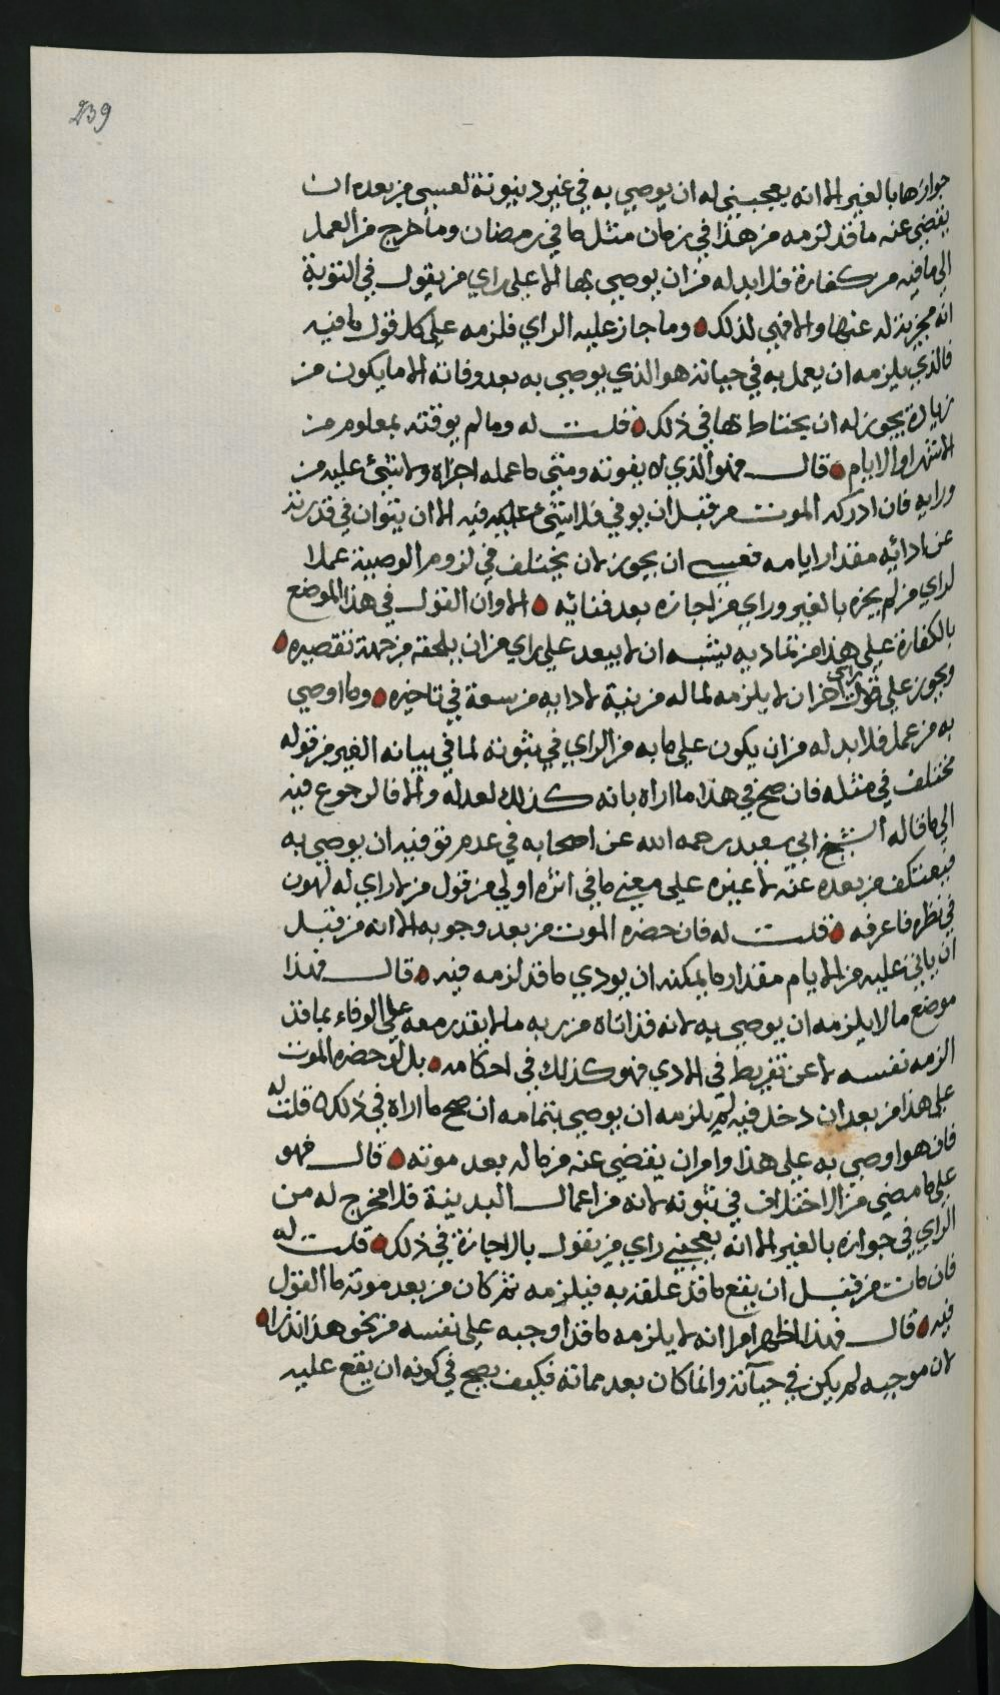 239
جوازها بالغير الا انه يعجبني له ان يوصي به في غير دينونة لعسى من بعده ان
يقضي عنه ما قد لزمه من هذا في زمان مثل ما في رمضان وما خرج من العمل
الى ما فيه من كفارة فلا بد له من ان يوصي بها الا على راي من يقول في التوبة
انه مجزية له عنها والا فهي لذلك وما جاز عليه الراي فلزمه على كل قول ما فيه
فالذي يلزمه ان يعمل به في حياته هو الذي يوصي به بعد وفاته الا ما يكون من
زيادة يجوز له ان يحتاط بها في ذلك قلت له وما لم يوقته بمعلوم من
الاشهر او الايام قال فهو الذي لا يفوته ومتى ما عمله اجزاه ولا شيء عليه من
ورايه فان ادركه الموت من قبل ان يوفي فلا شيء عليه فيه الا ان يتوان في قدرته
عن ادائه مقدار ايامه فعسى ان يجوز لان يختلف في لزوم الوصية عملا
لراي من لم يجزه بالغير وراي من اجازه بعد فنائه الا وان القول في هذا الموضع
بالكفارة على هذا من تماديه ليشبه ان لا يبعد على راي من ان يلحقه من جهة تقصيره
ويجوز على قول راي اخر ان لا يلزمه لما له من نية لادايه من سعة في تاخيره وما اوصي
به من عمل فلا بد له من ان يكون على ما به من الراي في ثبوته لما في بيانه الغير من قوله
مختلف في مثله فان صح في هذا ما اراه بانه كذلك لعدله والا فالرجوع فيه
الى ما قاله الشيخ ابي سعيد رحمه الله عن اصحابه في عدم قوفيه ان يوصي به
فيعتكف من بعده عنه لا غيره على معنى ما في اثره اولى من قول من لا راي له لهون
في نظره فاعرفه قلت له فان حضره الموت من بعد وجوبه الا انه من قبل
ان ياتي عليه من الايام مقدار ما يمكنه ان يودي ما قد لزمه فيه قال فهذا
موضع ما لا يلزمه ان يوصي به لانه قد اتاه من ربه ما لا يقدر معه على الوفاء بما قد
الزمه نفسه لا عن تفريط في الادي فهو كذلك في احكامه بل لو حضره الموت
على هذا من بعد ان دخل فيه لم يلزمه ان يوصي بتمامه ان صح ما اراه في ذلك قلت له
فان هو اوصي به على هذا وامر ان يقضي عنه من ماله بعد موته قال فهو
على ما مضى من الاختلاف في ثبوته لانه من اعمال البدينة فلا مخرج له من
الراي في جوازه بالغير الا انه يعجبني راي من يقول بالاجازة في ذلك قلت له
فان مات من قبل ان يقع ما قد علقه به فيلزمه ثم كان من بعد موته ما القول
فيه قال فهذا اظهر امرا انه لا يلزمه ما قد اوجبه على نفسه من نحو هذا نذرا
لان موجبه لم يكن في حياته وانما كان بعد مماته فكيف يصح في كونه ان يقع عليه